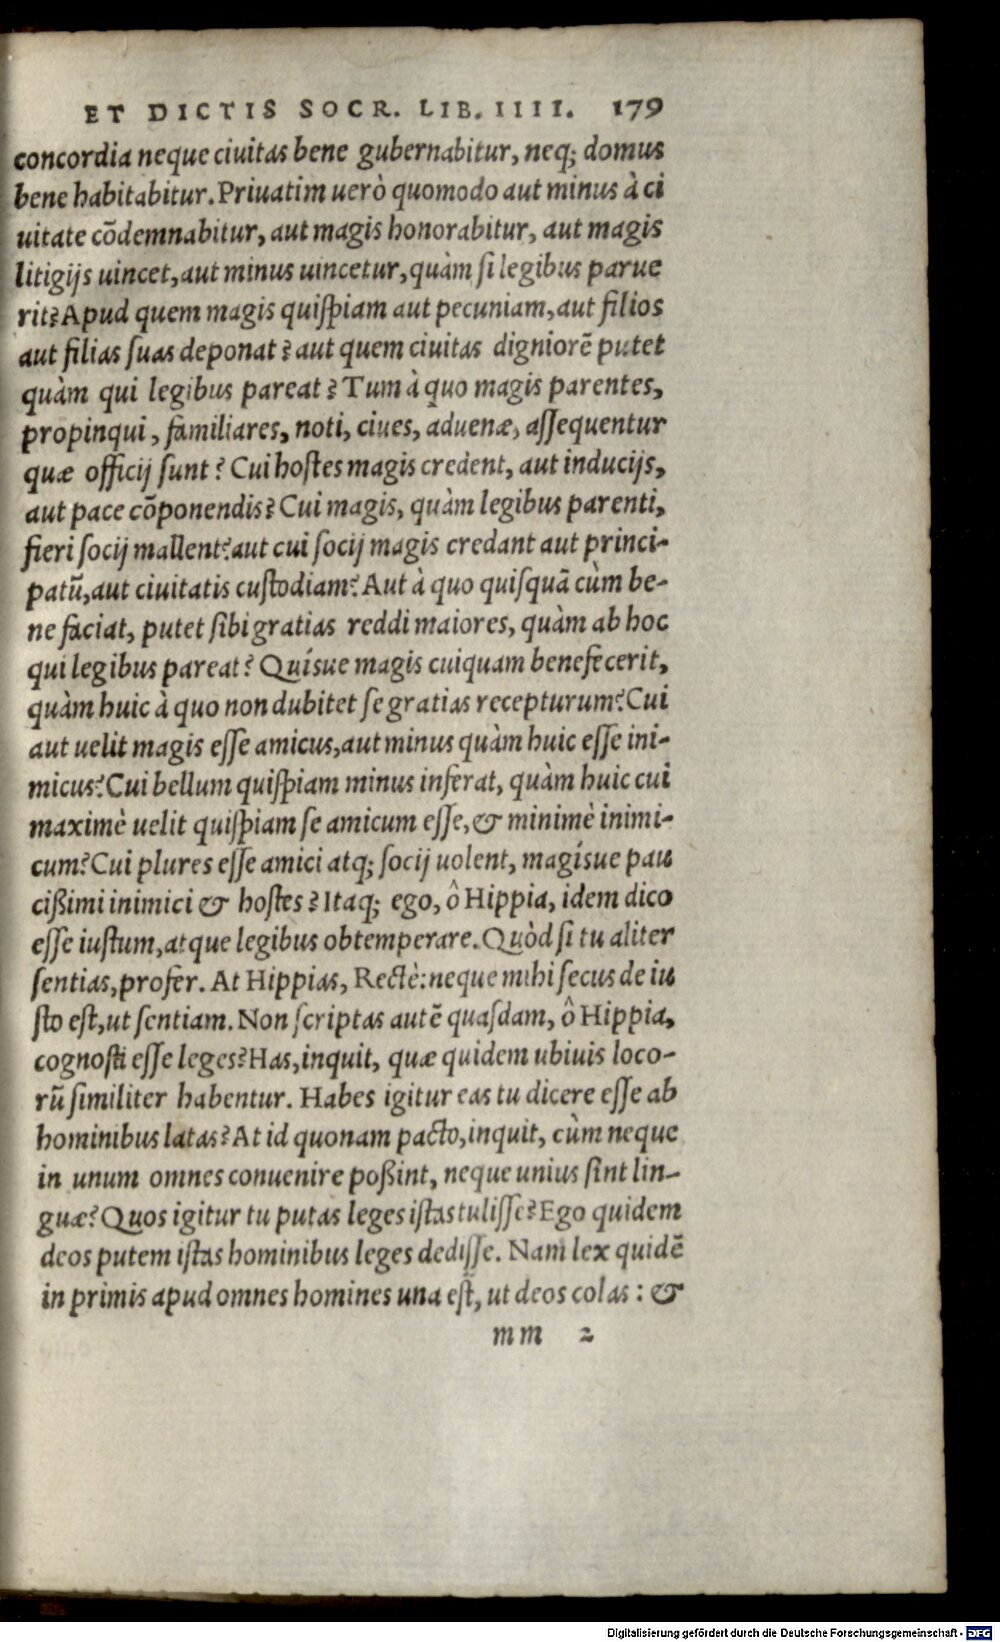 ET DICTIS SOCR. LIB. IIII. 179
concordia neque ciuitas bene gubernabitur, neq; domus
bene habitabitur. Priuatim uerò quomodo aut minus à ci
uitate cõdemnabitur, aut magis honorabitur, aut magis
litigijs uincet, aut minus uincetur, quàm ſi legibus parue
rit? Apud quem magis quiſpiam aut pecuniam, aut filios
aut filias ſuas deponat? aut quem ciuitas digniorẽ putet
quàm qui legibus pareat? Tum à quo magis parentes,
propinqui, familiares, noti, ciues, aduenæ, aſſequentur
quæ officij ſunt? Cui hoſtes magis credent, aut inducijs,
aut pace cõponendis? Cui magis, quàm legibus parenti,
fieri ſocij mallent? aut cui ſocij magis credant aut princi-
patũ, aut ciuitatis cuſtodiam? Aut à quo quiſquã cùm be-
ne faciat, putet ſibi gratias reddi maiores, quàm ab hoc
qui legibus pareat? Quíſue magis cuiquam benefecerit,
quàm huic à quo non dubitet ſe gratias recepturum? Cui
aut uelit magis eſſe amicus, aut minus quàm huic eſſe ini-
micus? Cui bellum quiſpiam minus inferat, quàm huic cui
maximè uelit quiſpiam ſe amicum eſſe, & minimè inimi-
cum? Cui plures eſſe amici atq; ſocij uolent, magíſue pau
cißimi inimici & hoſtes? Itaq; ego, ô Hippia, idem dico
eſſe iuſtum, atque legibus obtemperare. Quòd ſi tu aliter
ſentias, profer. At Hippias, Rectè: neque mihi ſecus de iu
ſto eſt, ut ſentiam. Non ſcriptas autẽ quaſdam, ô Hippia,
cognoſti eſſe leges? Has, inquit, quæ quidem ubiuis loco-
rũ ſimiliter habentur. Habes igitur eas tu dicere eſſe ab
hominibus latas? At id quonam pacto, inquit, cùm neque
in unum omnes conuenire poßint, neque unius ſint lin-
guæ? Quos igitur tu putas leges iſtas tuliſſe? Ego quidem
deos putem iſtas hominibus leges dediſſe. Nam lex quidẽ
in primis apud omnes homines una eſt, ut deos colas: &
mm 2
Digitalisierung gefördert durch die Deutsche Forschungsgemeinschaft - DFG